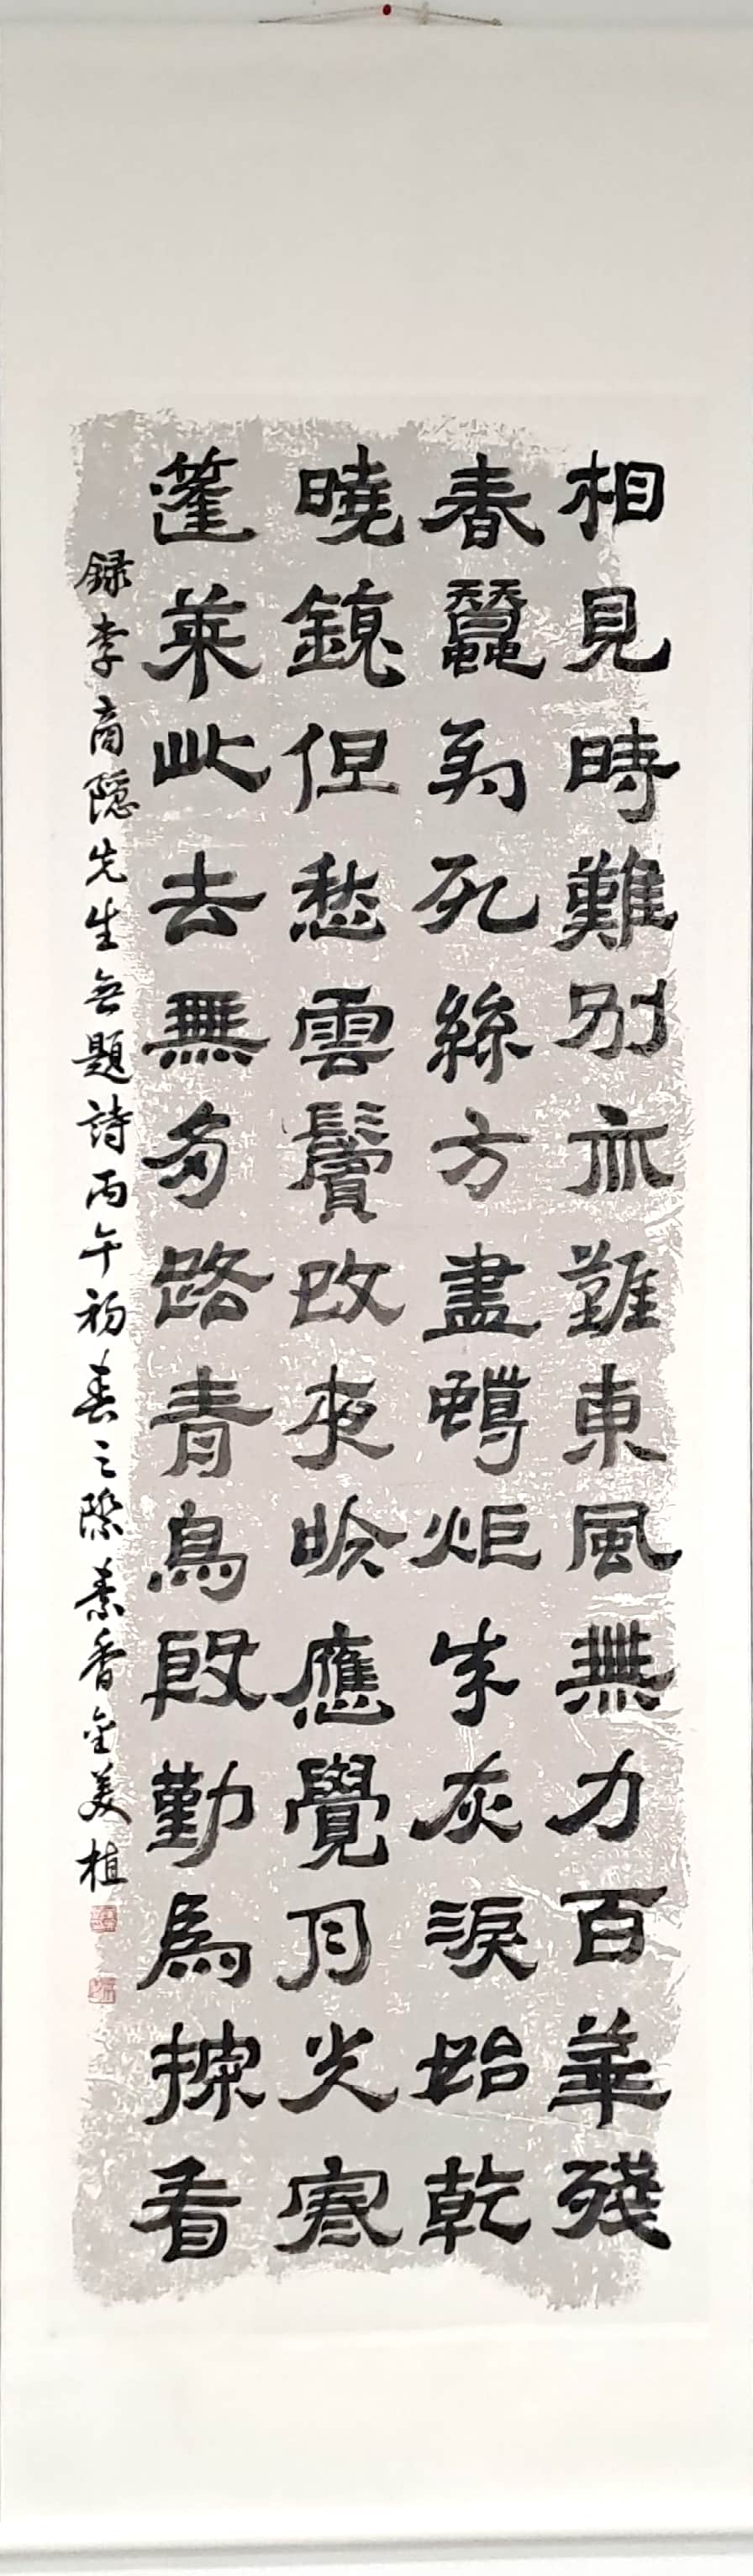 相見時難別亦難東風無力百華殘
春蠶到死絲方盡蠟炬成灰淚始乾
曉鏡但愁雲鬢改夜吟應覺月光寒
蓬萊此去無多路青鳥殷勤爲探看
録李商隱先生無題詩丙午初春之際素香金美植